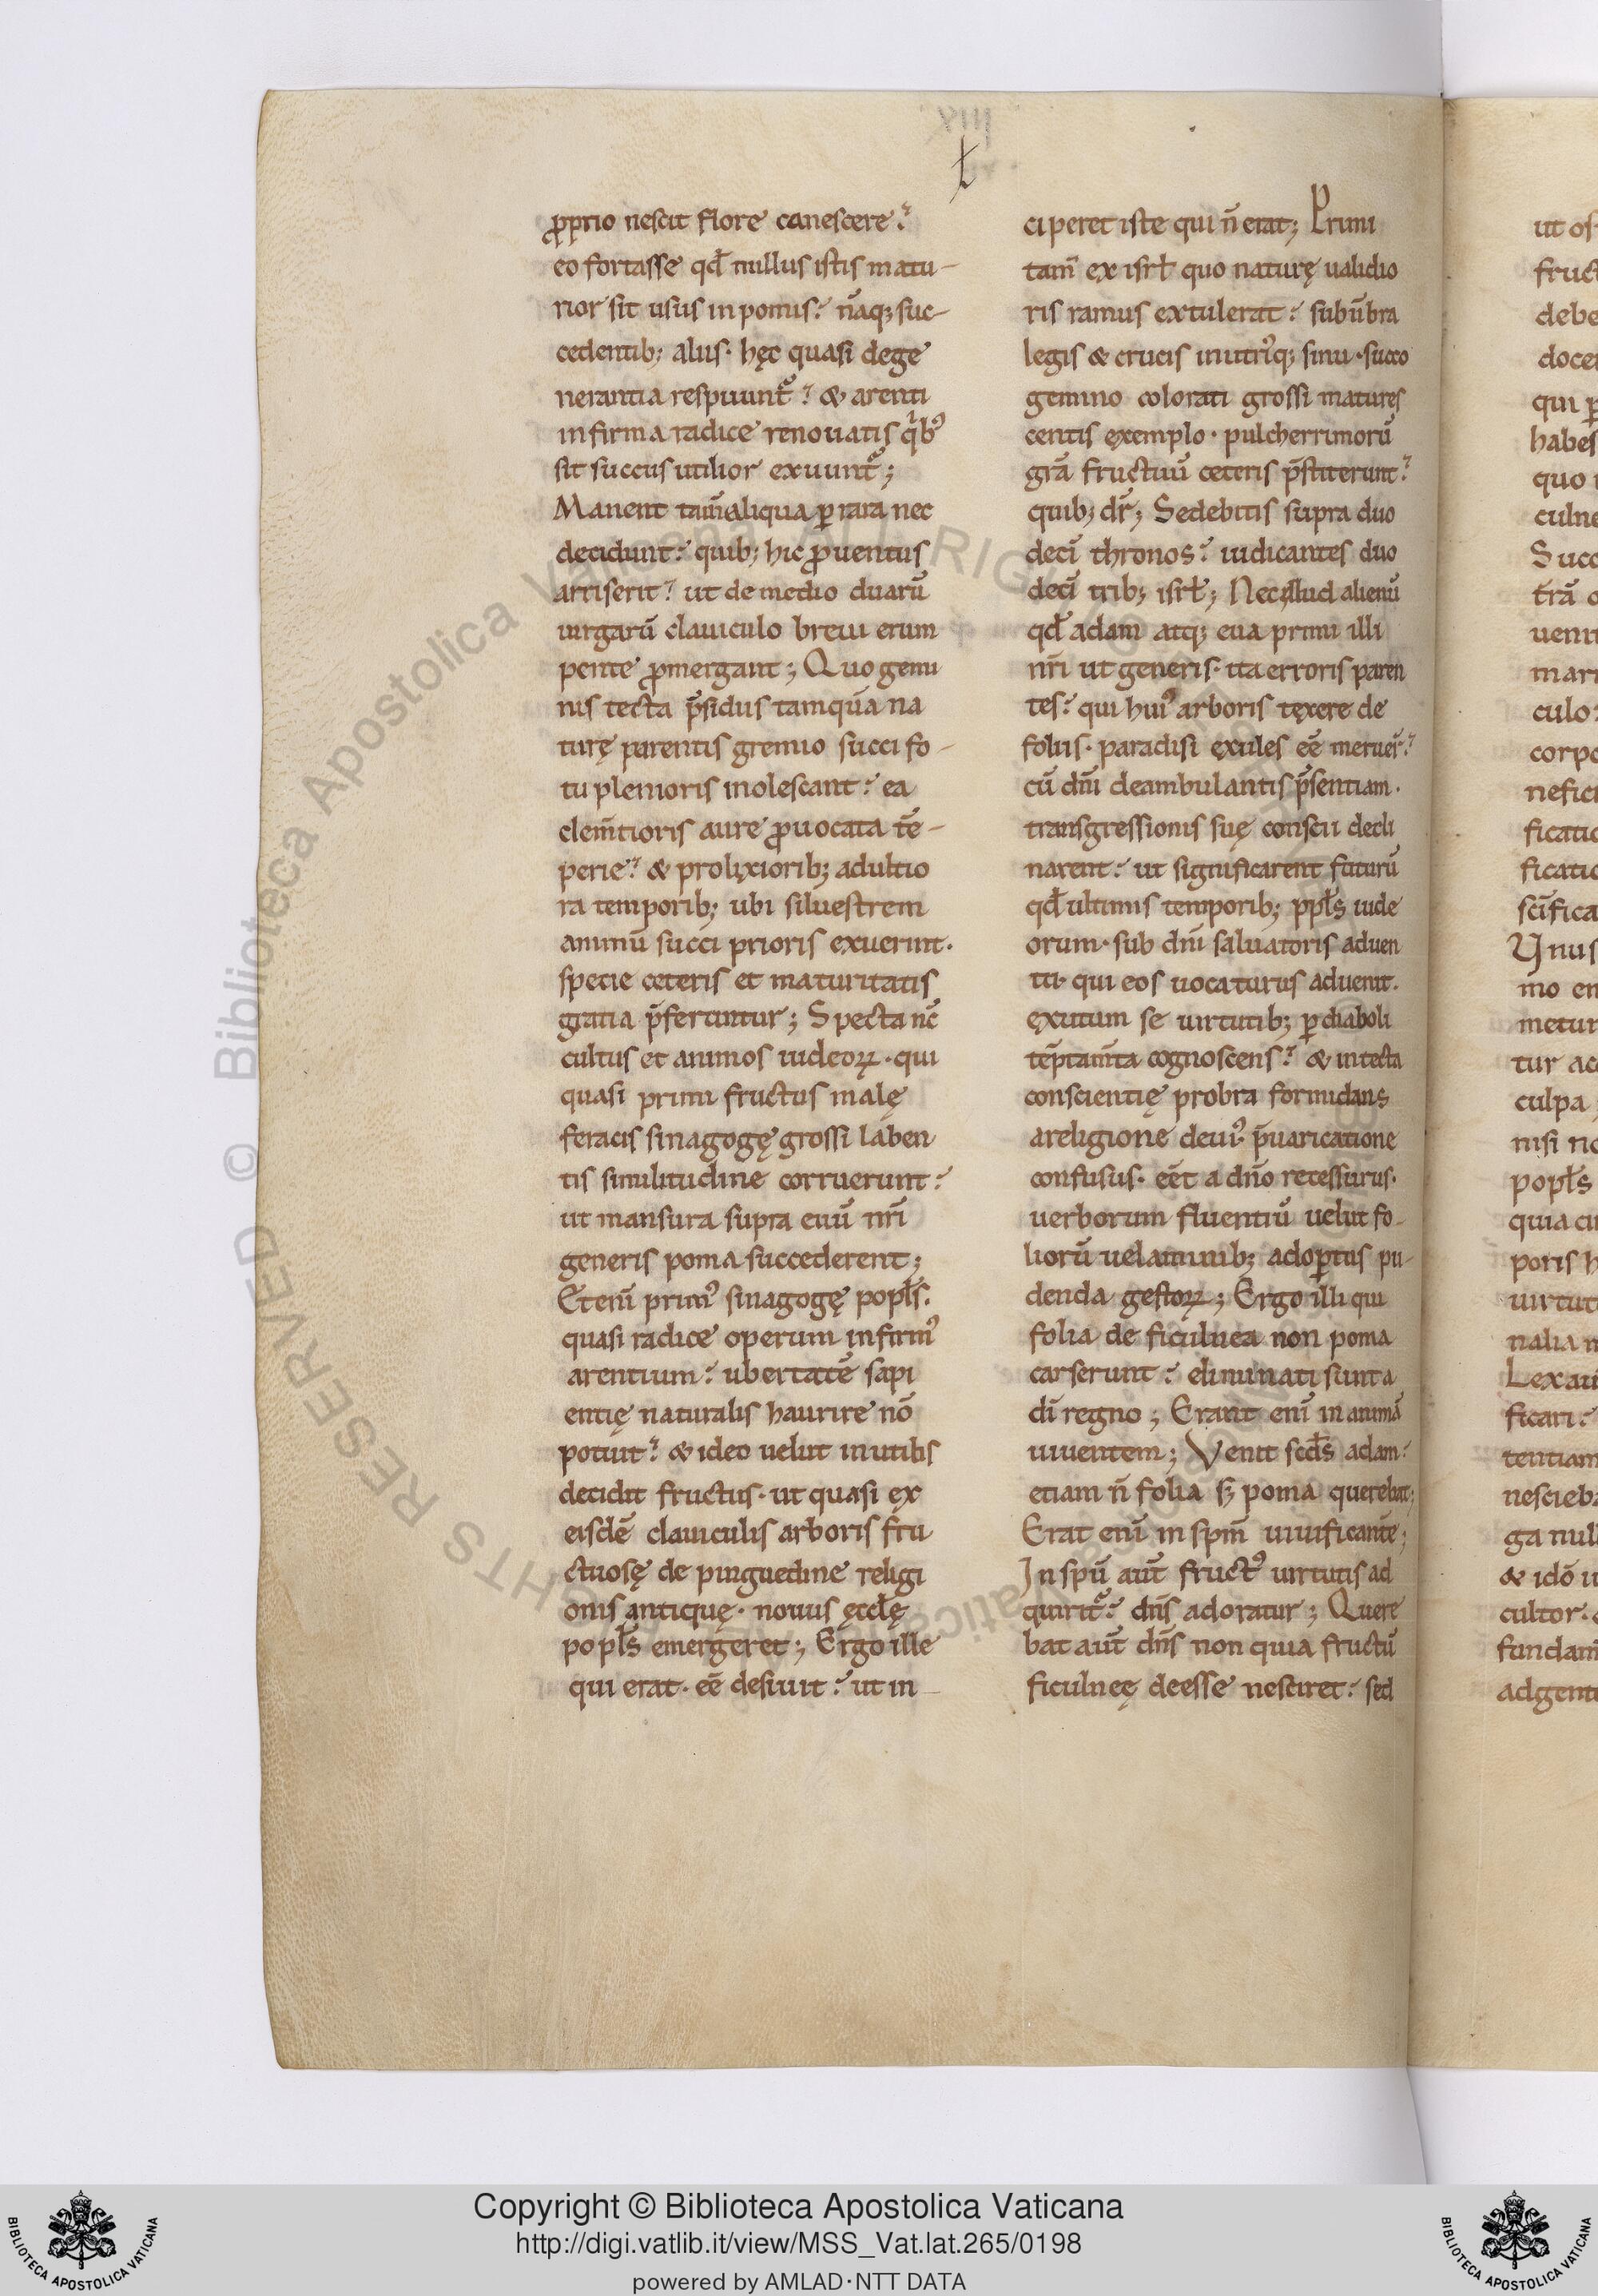 ꝓprio nescit flore canescere?
eo fortasse qđ nullus istis matu-
rior sit usus in pomis? nāq; suc-
cedentib; aliis · hęc quasi dege
nerantia respuunt̃? & arenti
infirma radice renouatis q̇b⁹
sit succus utilior exuunt̃;
Manent tam̄ aliqua ꝑ rara nec
decidunt? quib; hic ꝓuentus
arriserit? ut de medio duarū
uirgarū clauiculo breui erum
pente ꝓmergant; Quo gemi
nis tecta p̄sidus tamquā na
turę parentis gremio succi fo-
tu plenioris inolescant? ea
clem̄tioris aure ꝓuocata tē-
perie? & prolixiorib; adultio
ra temporib; ubi siluestrem
animū succi prioris exuerint.
specie ceteris et maturitatis
gratia p̄feruntur; Specta nc̄
cultus et animos iudeoꝝ · qui
quasi primi fructus malę
feracis sinagogę grossi laben
tis similitudine corruerunt?
ut mansura supra euū nr̄i
generis poma succederent;
Etenī prim⁹ sinagogę popl̄s.
quasi radice operum infirm⁹
arentium? ubertatē sapi
entię naturalis haurire nō
potuit? & ideo uelut inutilis
decidit fructus · ut quasi ex
eisdē clauiculis arboris fru
ctuosę de pinguedine religi
onis antiquę · nouus ęccl̄ę
popl̄s emergeret; Ergo ille
qui erat · eē desiuit? ut in
ciperet iste qui n̄ erat; Primi
tam̄ ex isrl̄ quo naturę ualidio
ris ramus extulerat? sub ūbra
legis & crucis inutriq; sinu · succo
gemino colorati grossi matures
centis exemplo · pulcherrimorū
gr̄a fructuū ceteris p̄stiterunt?
quib; dr̄; Sedebitis supra duo
decī thronos? iudicantes duo
decī trib; isrl̄; Nec illud alienū
qđ adam atq; eua primi illi
nr̄i ut generis · ita erroris paren
tes? qui hui⁹ arboris texere de
foliis · paradisi exules eē meruer̄?
cū dn̄i deambulantis p̄sentiam ·
transgressionis suę conscii decli
narent? ut significarent futurū
qđ ultimis temporib; ppl̄s iude
orum · sub dn̄i saluatoris aduen
tu · qui eos uocaturus aduenit.
exutum se uirtutib; ꝑ diaboli
tēptam̄ta cognoscens? & intecta
conscientię probra formidans
a religione deui⁹ · p̄uaricatione
confusus · eēt a dn̄o recessurus ·
uerborum fluentiū uelut fo-
liorū uelaminib; adoꝑtus pu-
denda gestoꝝ; Ergo illi qui
folia de ficulnea non poma
carserunt? eliminati sunt a
dī regno; Erant enī in animā
uiuentem; Venit scd̄s adam?
etiam n̄ folia s; poma querebat;
Erat enī in spm̄ uiuificante;
In spū aut̄ fruct⁹ uirtutis ad
quirit̃? dn̄s adoratur; Quere
bat aut̄ dn̄s non quia fructū
ficulneę deesse nesciret? sed
ut os
fruct
debe
doce
habes
quo
culne
Succ
culo
corpo
nefici
ficatio
ficatio
Unus
mo en
metur
tur ac
culpa
nisi no
popl̄s
quia cu
poris h
uirtut
nalia n
Lex au
ficari?
tentiam
nescieba
ga null
& idō u
cultor ·
fundam̄
ad gent
© Biblioteca Apostolica Vaticana ALL RIGHTS RESERVED
Copyright © Biblioteca Apostolica Vaticana
http://digi.vatlib.it/view/MSS_Vat.lat.265/0198
powered by AMLAD·NTT DATA
BIBLIOTECA APOSTOLICA VATICANA
BIBLIOTECA APOSTOLICA VATICANA